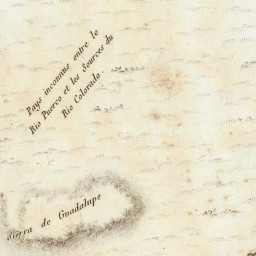 Pays inconnus entre le
Rio Puerco et les Sources du
Rio Colorado
Sierra de Guadalupe